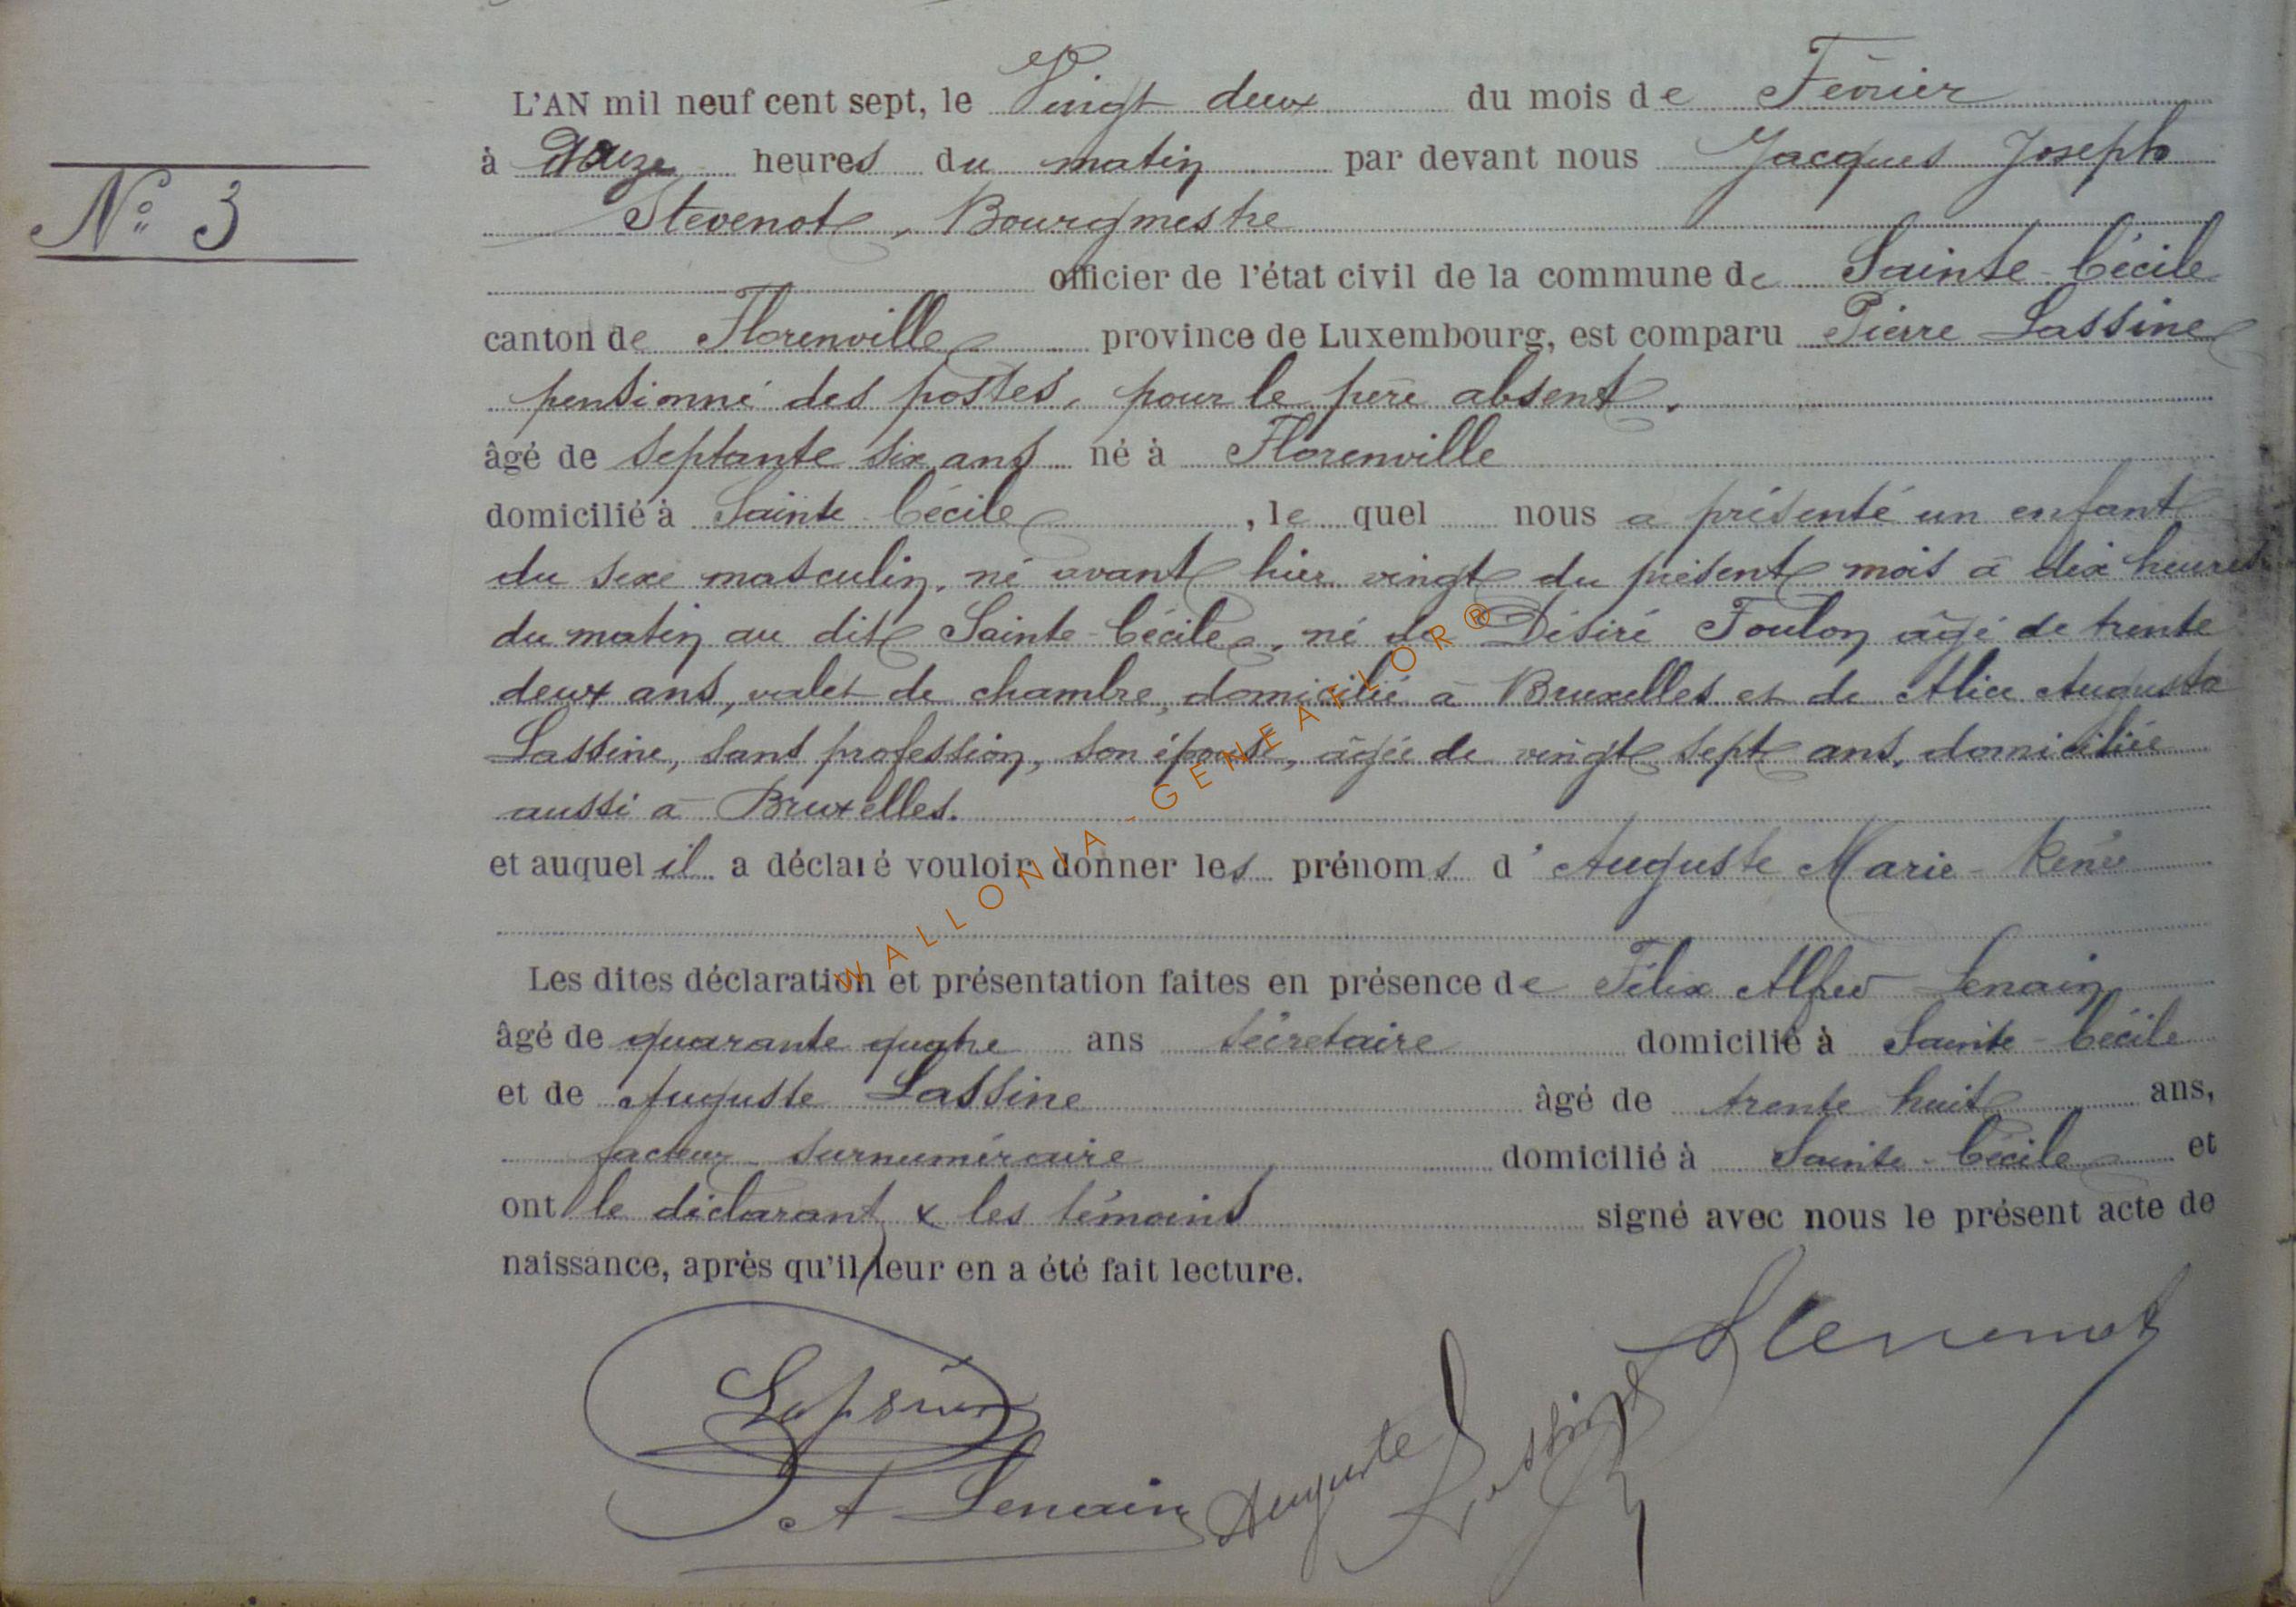 L'AN mil neuf cent sept, le Vingt deux du mois de Février
à heures du matin par devant nous Jacques Joseph
N° 3
Stevenot, Bourgmestre
officier de l'état civil de la commune de Sainte-Cécile
canton de Florenville province de Luxembourg, est comparu Pierre Lassine
pensionné des postes, pour le père absent,
âgé de septante six ans né à Florenville
domicilié à Sainte Cécile, le quel nous a présenté un enfant
du sexe masculin, né avant hier vingt du présent mois à dix heures
du matin au dit Sainte-Cécile, né de Désiré Foulon âgé de trente
deux ans, valet de chambre, domicilié à Bruxelles et de Alice Augusta
Lassine, sans profession, son épouse, âgée de vingt sept ans, domiciliée
aussi à Bruxelles.
et auquel il a déclaré vouloir donner les prénoms d'Auguste Marie-René
Les dites déclaration et présentation faites en présence de Félix Alfred Lenain
âgé de quarante quatre ans secrétaire domicilié à Sainte-Cécile
et de Auguste Lassine âgé de trente huit ans,
facteur surnuméraire domicilié à Sainte-Cécile et
ont le déclarant & les témoins signé avec nous le présent acte de
naissance, après qu'il leur en a été fait lecture.
Stevenot
Lassine
A Lenain
Auguste Lassine
WALLONIA-GENEAFLOR®